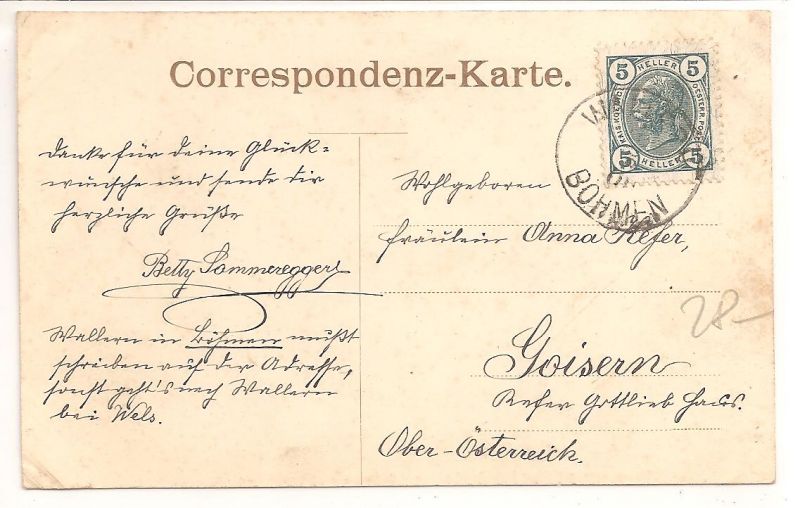 Correspondenz-Karte.
5 HELLER 5
5 HELLER 5
BÖHMEN
Danke für deine Glück-
wünsche und sende dir
herzliche Grüße
Betty Sommeregger
Wallern in Böhmen mußt
schreiben auf der Adresse,
sonst geht's nach Wallern
bei Wels.
Wohlgeboren
Fräulein Anna Kefer,
Goisern
Kefer Gottlieb Haus.
Ober-Österreich.
28-